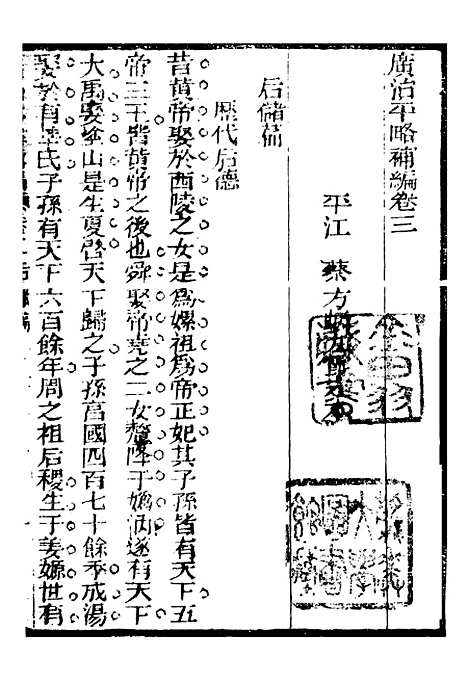 廣治平略補編卷三
平江 蔡方炳
后儲篇
歷代后德
昔黃帝娶於西陵之女是爲嫘祖爲帝正妃其子孫皆有天下五
帝三王皆黃帝之後也舜娶帝堯之二女釐降于嬀汭遂有天下
大禹娶塗山是生夏啓天下歸之子孫富國四百七十餘年成湯
娶於有㜪氏子孫有天下六百餘年周之祖后稷生于姜嫄世有